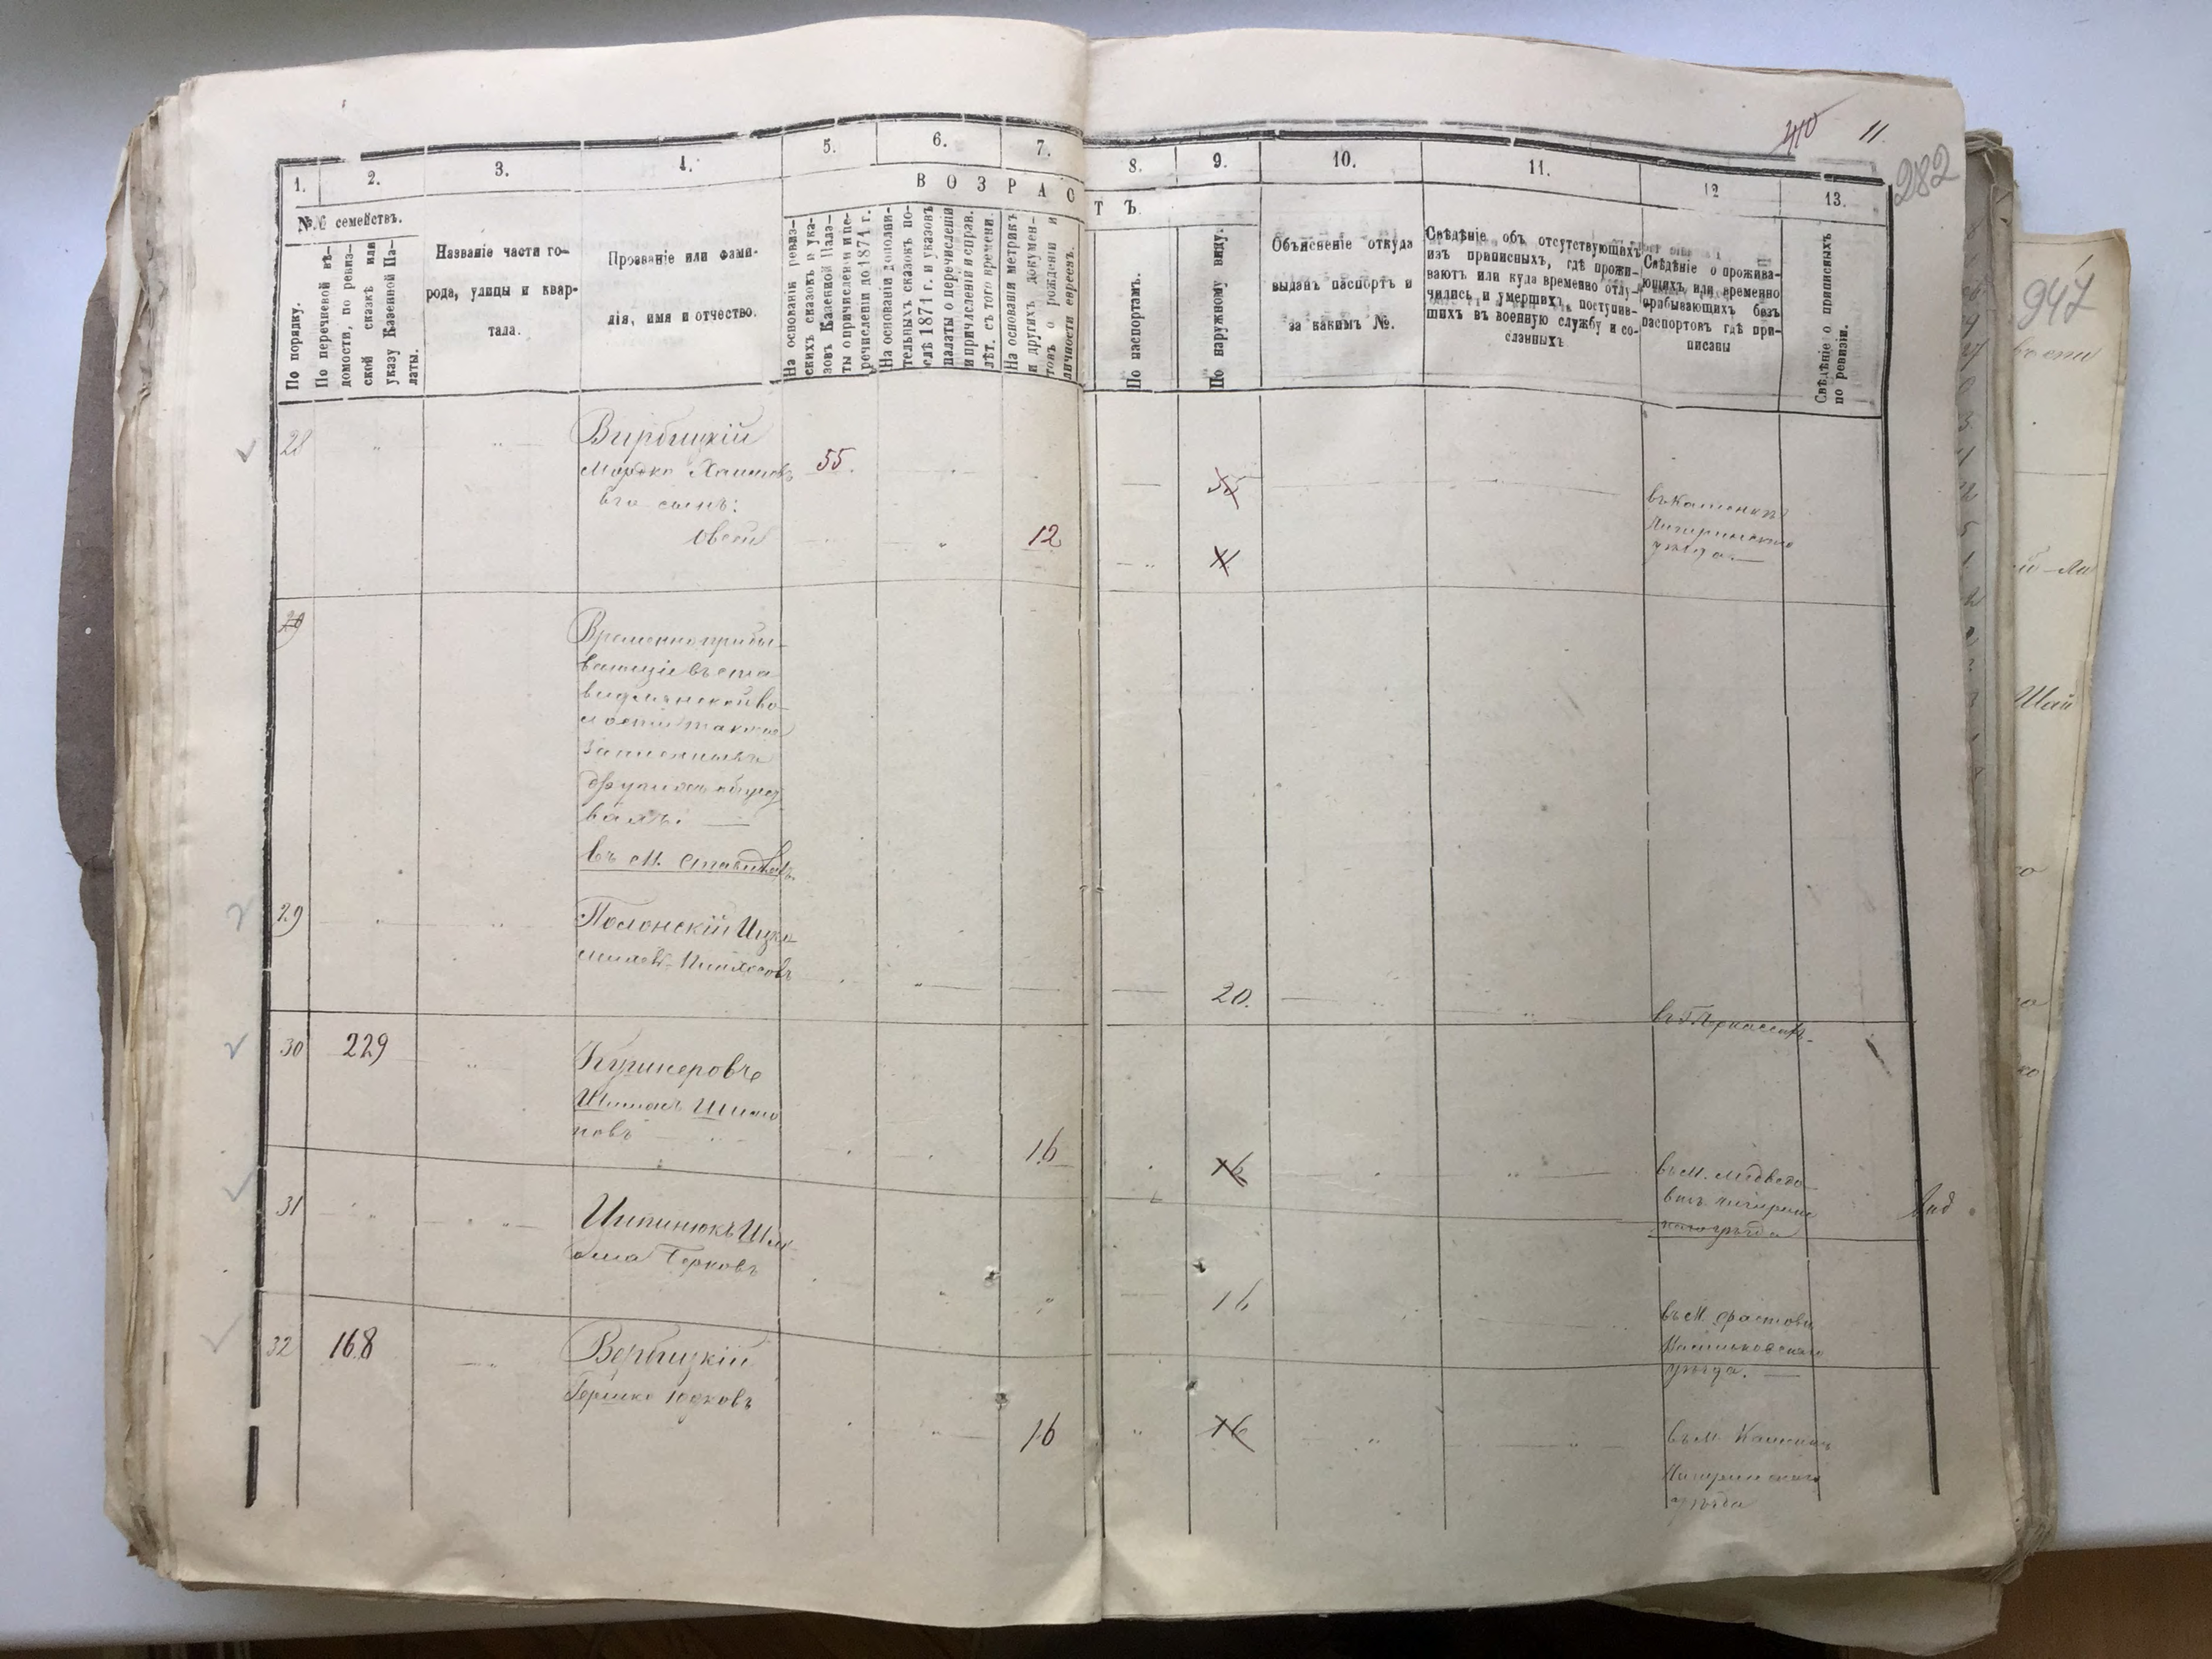 410 11.
282
1. 2. 3. 4. 5. 6. 7. 8. 9. 10. 11. 12 13.
№№ семействъ.
В О З Р А С Т Ъ.
По порядку.
По перечневой вѣ-
домости, по ревиз-
ской сказкѣ или
указу Казенной Па-
латы.
Названіе части го-
рода, улицы и квар-
тала.
Прозваніе или фами-
лія, имя и отчество.
На основаніи ревиз-
скихъ сказокъ и ука-
зовъ Казенной Пала-
ты о причисленіи и пе-
речисленіи до 1871 г.
На основаніи дополни-
тельныхъ сказокъ по-
слѣ 1871 г. и указовъ
палаты о перечисленіи
и причисленіи и справ.
лѣт. съ того времени.
На основаніи метрикъ
и другихъ докумен-
товъ о рожденіи и
личности евреевъ.
По паспортамъ.
По наружному виду.
Объясненіе откуда
выданъ паспортъ и
за какимъ №.
Свѣдѣніе объ отсутствующихъ
изъ приписныхъ, гдѣ прожи-
ваютъ или куда временно отлу-
чились и умершихъ, поступив-
шихъ въ военную службу и со-
сланныхъ
Свѣдѣніе о прожива-
ющихъ или временно
прибывающихъ безъ
паспортовъ гдѣ при-
писаны
Свѣдѣніе о приписныхъ
по ревизіи.
28 Вирбицкій
Мордко Хаимовъ 55. 55
его сынъ:
Овсей 12 11
въ Каменкѣ
Чигиринскаго
уѣзда.
29 Временно прибы-
вающіе въ Ста
видлянской во-
лости также
записаны въ
другихъ общес
вахъ.
въ М. Ставидлахъ
29 Полонскій Ицко
20.
въ Г. Черкассахъ
30 229 Кушнеровъ
Шимонъ Шимо
новъ 16 16
въ М. Медведо
вкѣ Чигирин
скаго уѣзда
31 Ципинюкъ Шле
ома Герковъ
16
въ М. Фастовѣ
Васильковскаго
уѣзда.
32 168 Вербицкій
Гершко Юдковъ
16 16
въ М. Каменкѣ
Чигиринскаго
уѣзда
947
Шай